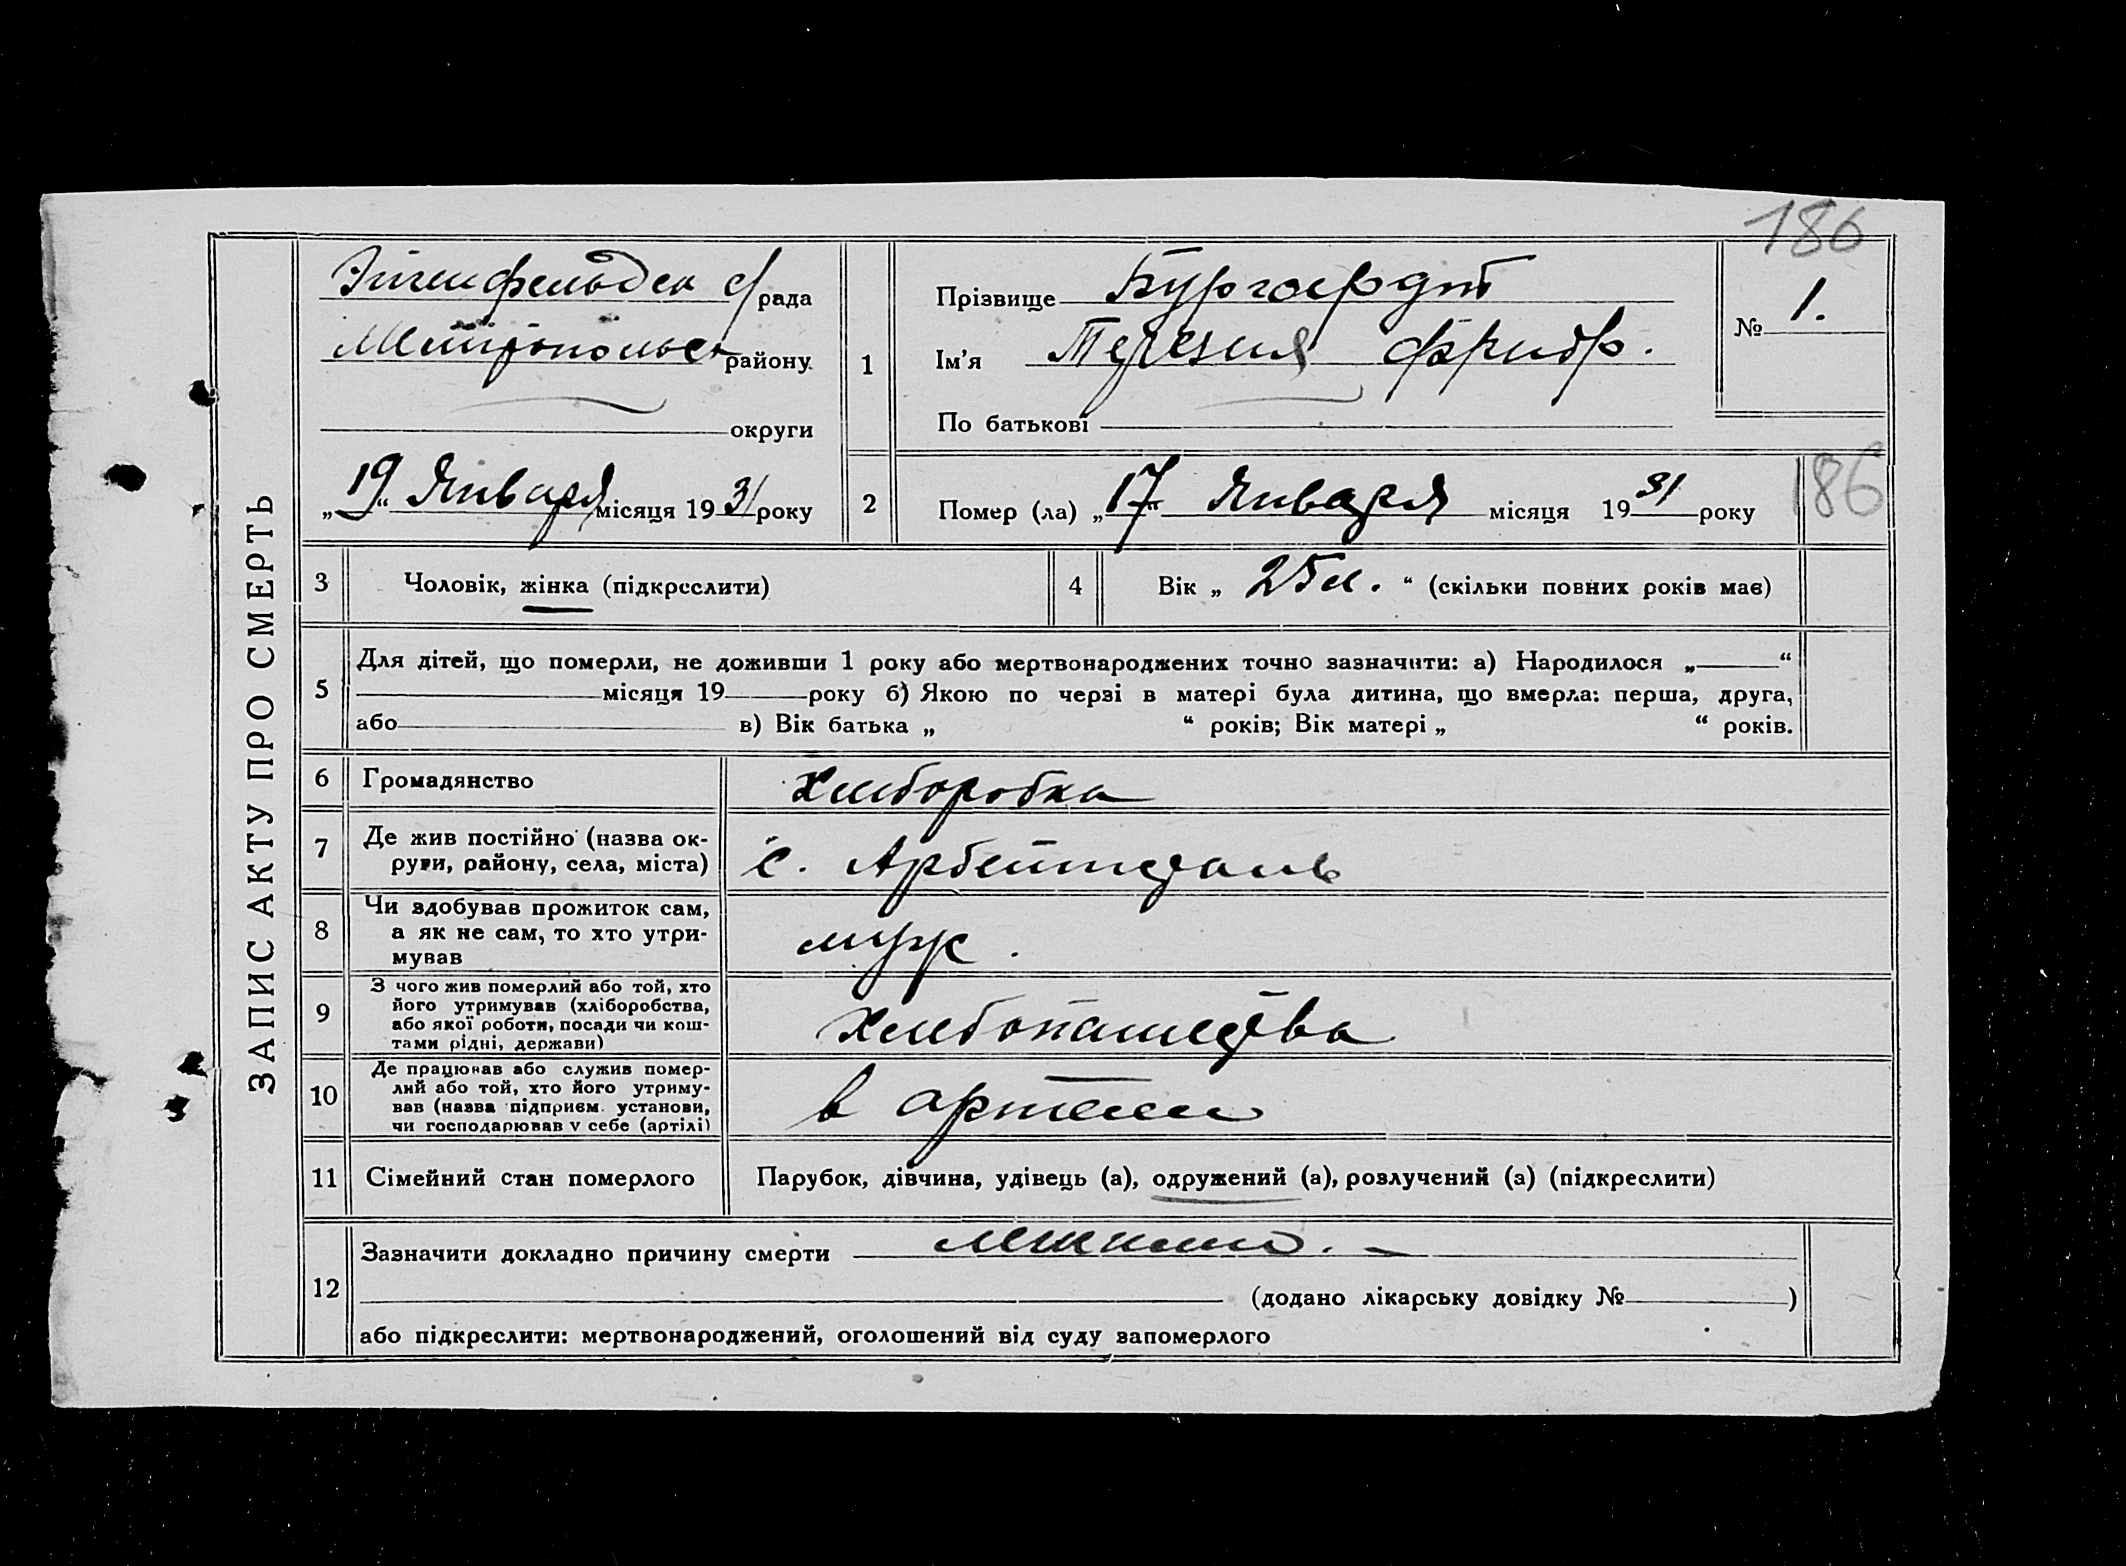 186
ЗАПИС АКТУ ПРО СМЕРТЬ
Эйгенфельдск с/рада
району
округи
„19“ Января місяця 1931 року
1
Прізвище Бургардт
Ім'я Терезия Фридр.
По батькові
№ 1.
2
Помер (ла) „17“ Января місяця 1931 року
186
3 Чоловік, жінка (підкреслити)
4 Вік „ 25 л. “ (скільки повних років має)
5
Для дітей, що померли, не доживши 1 року або мертвонароджених точно зазначити: а) Народилося „ “
місяця 19 року б) Якою по черзі в матері була дитина, що вмерла: перша, друга,
або в) Вік батька „ “ років; Вік матері „ “ років.
6 Громадянство Хлеборобка
7 Де жив постійно (назва ок-
руги, району, села, міста) с. Арбейтсдаль
8 Чи здобував прожиток сам,
а як не сам, то хто утри-
мував муж.
9 З чого жив померлий або той, хто
його утримував (хліборобства,
або якої роботи, посади чи кош-
тами рідні, держави) Хлебопашества
10 Де працював або служив помер-
лий або той, хто його утриму-
вав (назва підприєм. установи,
чи господарював у себе (артілі) в артели
11 Сімейний стан померлого Парубок, дівчина, удівець (а), одружений (а), розлучений (а) (підкреслити)
12
Зазначити докладно причину смерти
(додано лікарську довідку № )
або підкреслити: мертвонароджений, оголошений від суду запомерлого